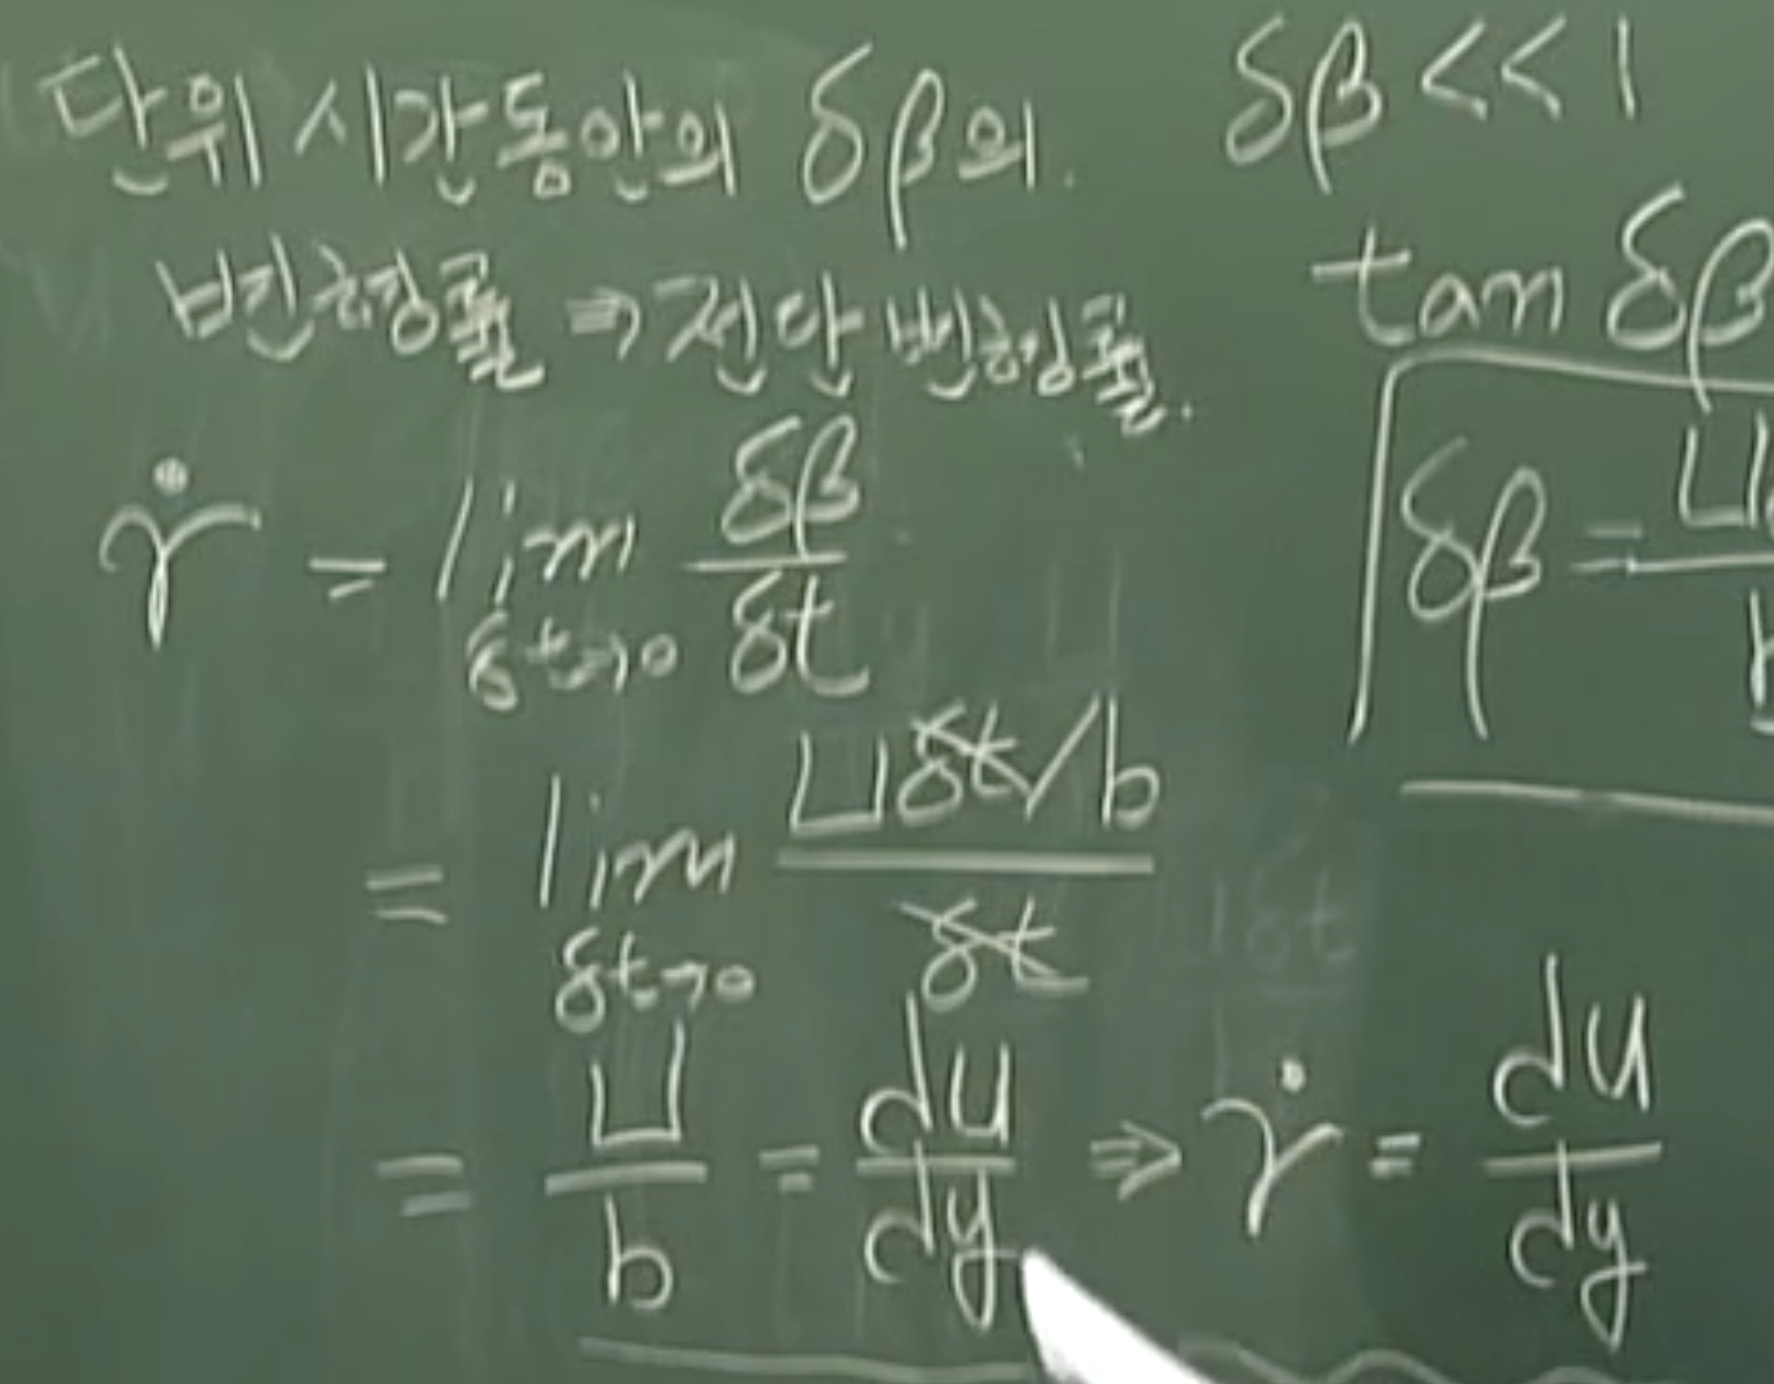 단위 시간동안의 δβ의.
변형률 ⇒ 전단 변형률.
γ̇ = lim δt→0 δβ/δt
= lim δt→0 (Uδt/b)/δt
= U/b = du/dy ⇒ γ̇ = du/dy
δβ << 1
tan δβ
δβ =